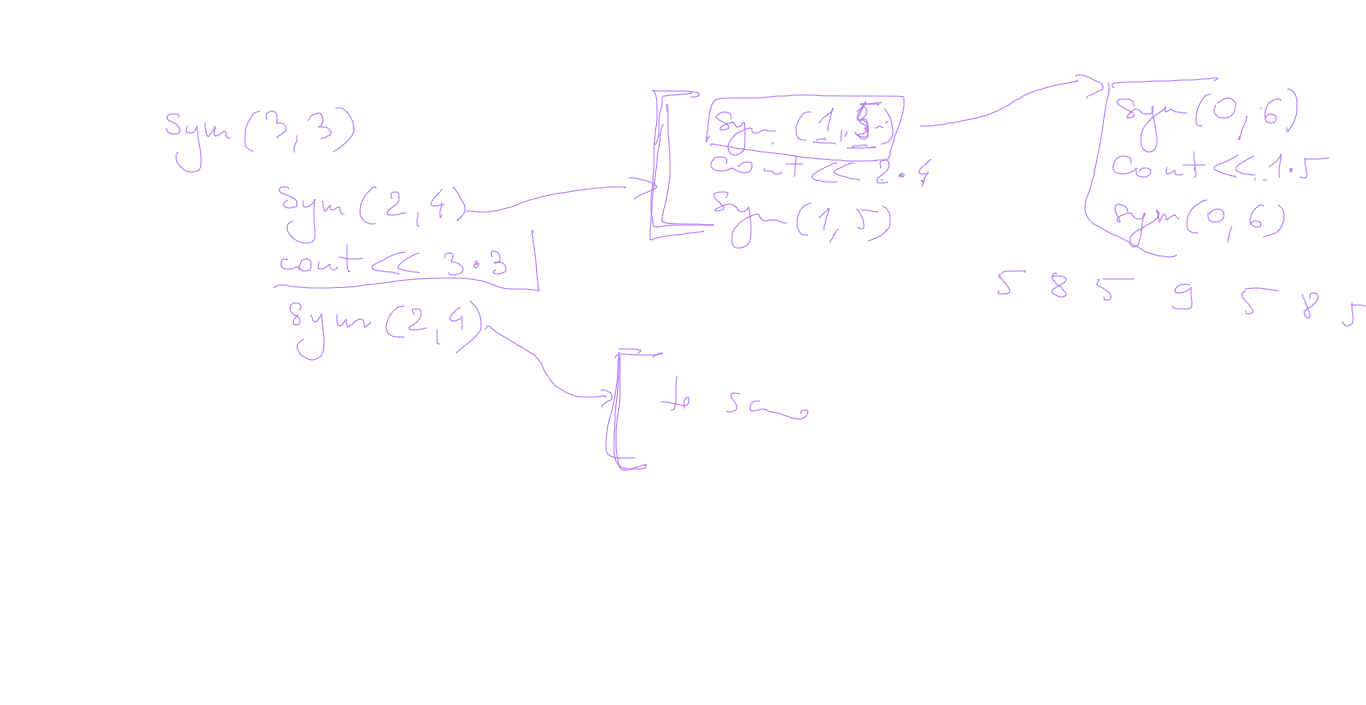 sym(3,3)
sym(2,4)
cout << 3·3
sym(2,4)
sym(1,5)
cout << 2·4
sym(1,5)
sym(0,6)
cout << 1·5
sym(0,6)
5 8 5 9 5 8 5
to samo